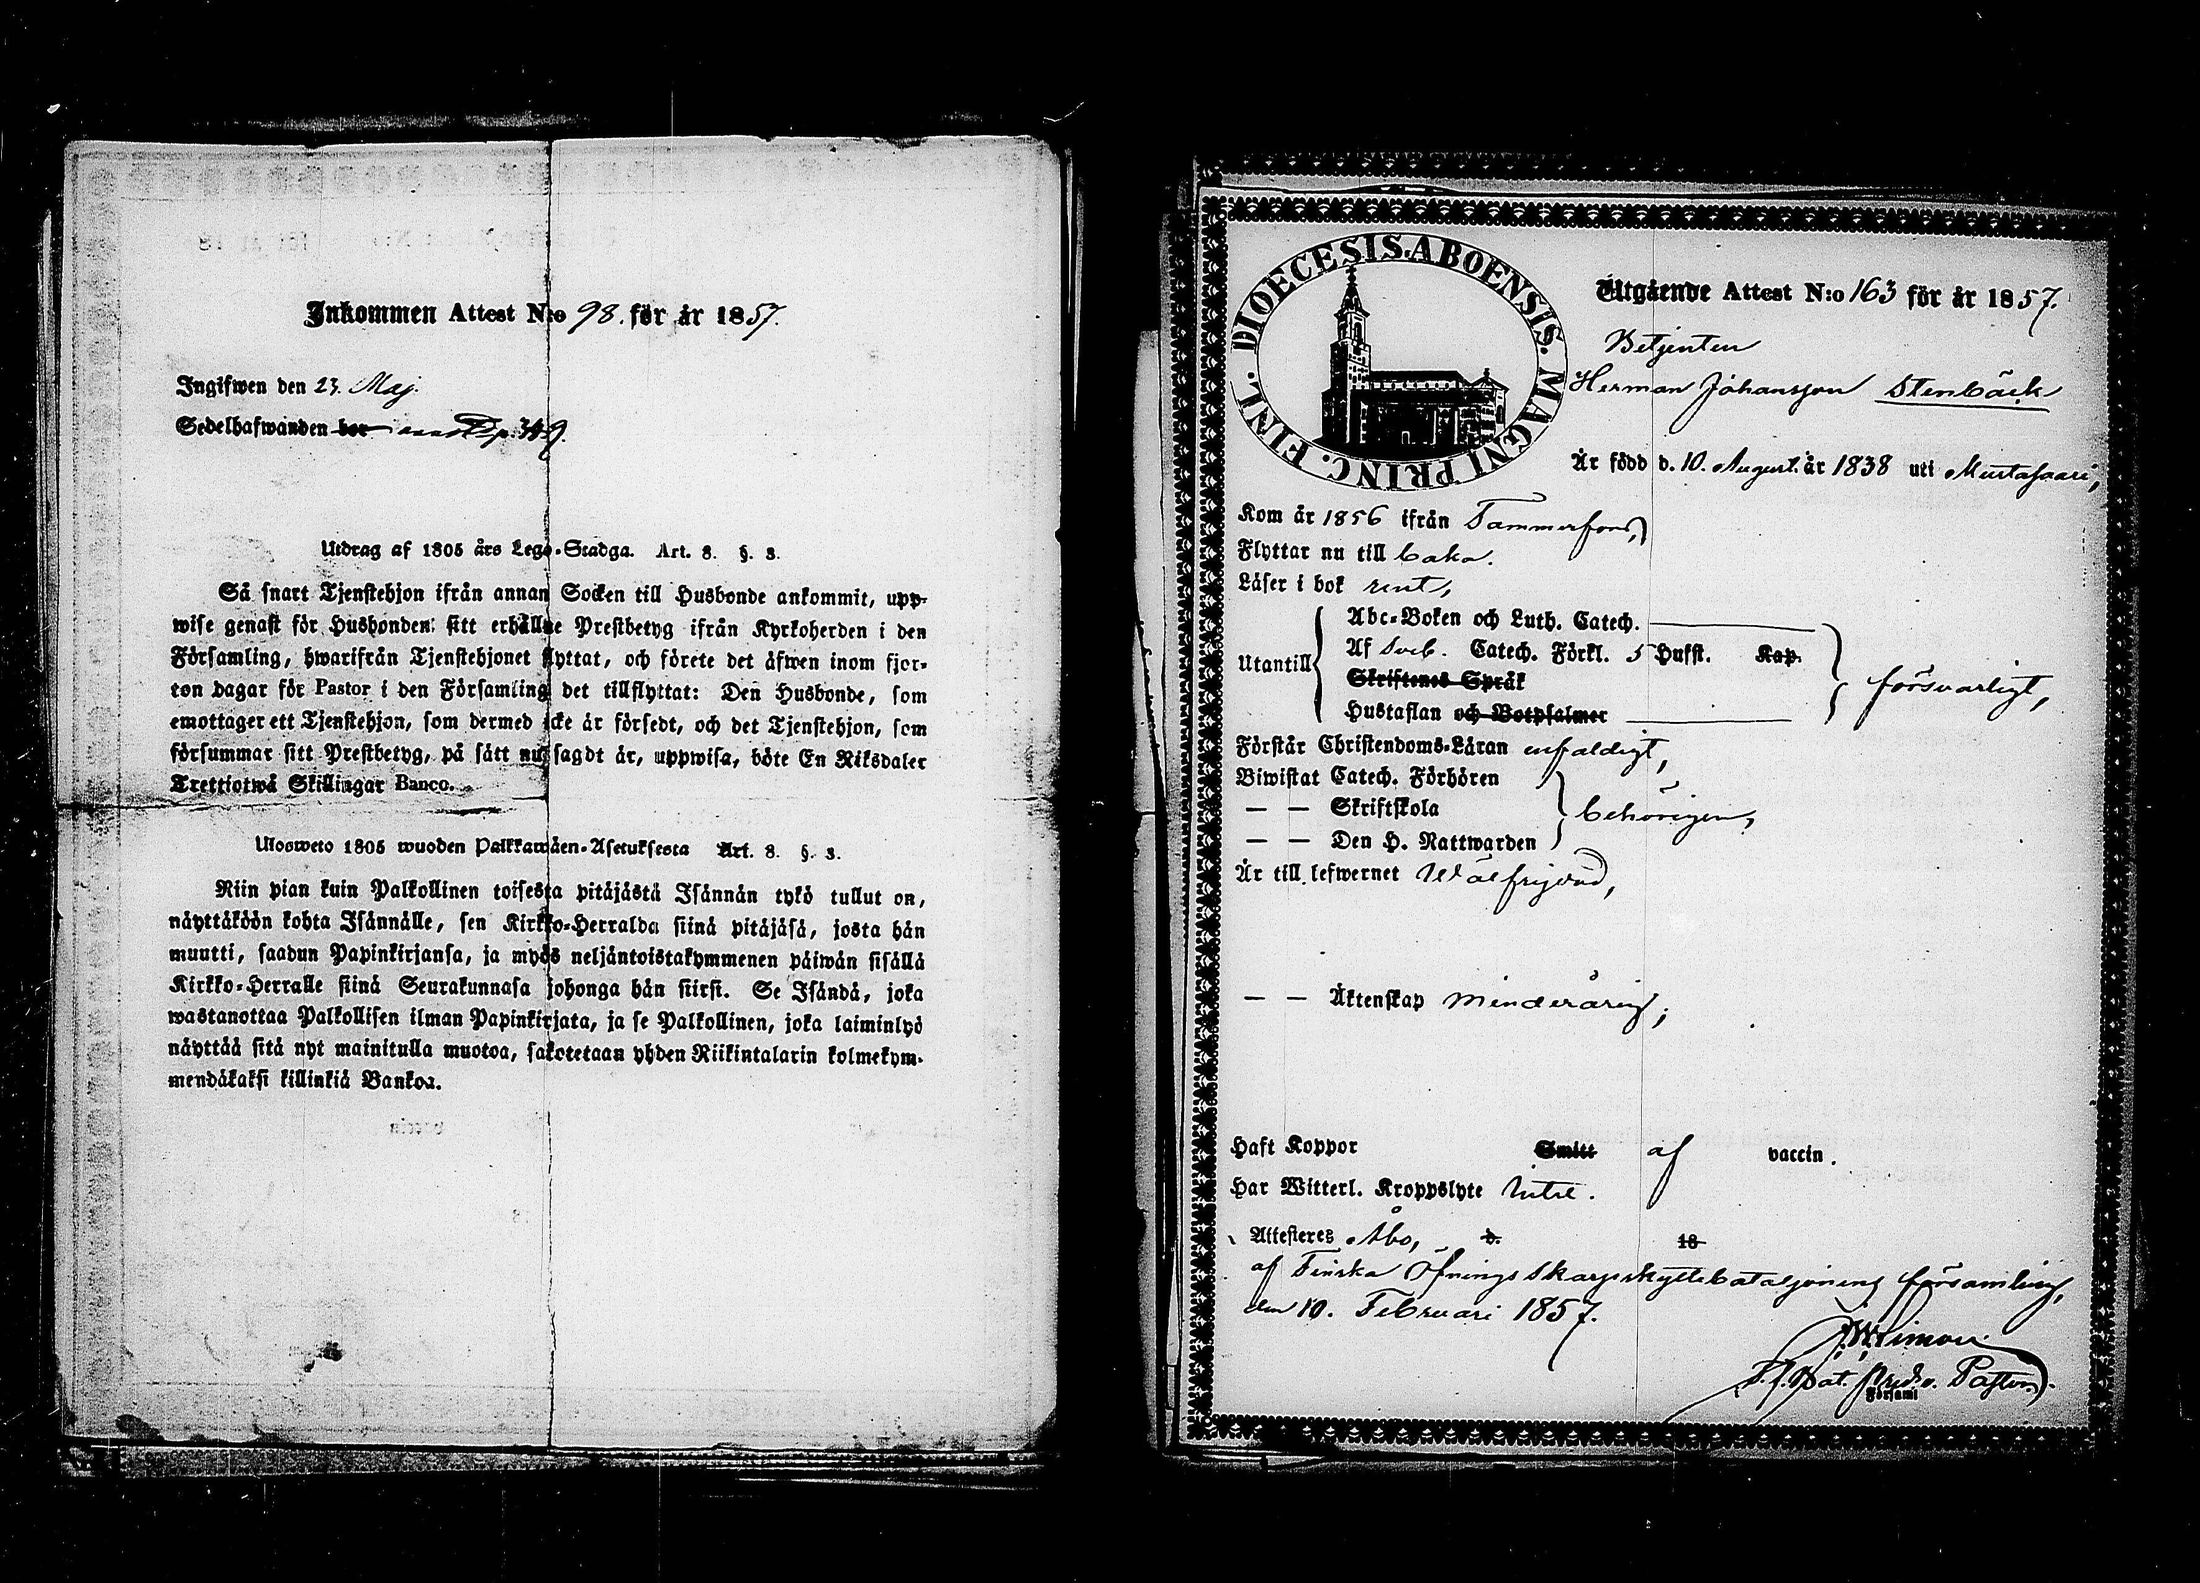 Inkommen Attest N:o 98. för år 1857.
Ingifwen den 23. Maj.
Sedelhafwanden bor
Utdrag af 1805 års Lego-Stadga. Art. 8. §. 3.
Så snart Tjenstehjon ifrån annan Socken till Husbonde ankommit, upp-
wise genast för Husbonden sitt erhållne Prestbetyg ifrån Kyrkoherden i den
Församling, hwarifrån Tjenstehjonet flyttat, och förete det äfwen inom fjor-
ton dagar för Pastor i den Församling det tillflyttat: Den Husbonde, som
emottager ett Tjenstehjon, som dermed icke är försedt, och det Tjenstehjon, som
försummar sitt Prestbetyg, på sätt nu sagdt är, uppwisa, böte En Riksdaler
Trettiotwå Skillingar Banco.
Ulosweto 1805 wuoden Palkkawäen-Asetuksesta Art. 8. §. 3.
Niin pian kuin Palkollinen toisesta pitäjästä Isännän tykö tullut on,
näyttäköön kohta Isännälle, sen Kirkko-Herralda siinä pitäjäsä, josta hän
muutti, saadun Papinkirjansa, ja myös neljäntoistakymmenen päiwän sisällä
Kirkko-Herralle siinä Seurakunnasa johonga hän siirsi. Se Isändä, joka
wastanottaa Palkollisen ilman Papinkirjata, ja se Palkollinen, joka laiminlyö
näyttää sitä nyt mainitulla muotoa, sakotetaan yhden Riikintalarin kolmekym-
mendäkaksi killinkiä Bankoa.
DIOECESIS. ABOENSIS. MAGNI PRINC. FINL.
Utgående Attest N:o 163 för år 1857.
Betjenten
Herman Johansson Stenbäck
Är född d. 10. August. år 1838 uti Mustasaari,
Kom år 1856 ifrån Tammerfors,
Flyttar nu till
Läser i bok rent,
Abc-Boken och Luth. Catech.
Utantill Af Sveb. Catech. Förkl. 5 Hufst. Kap.
Skriftenes Språk försvarligt,
Hustaflan och Botpsalmer
Förstår Christendoms-Läran enfaldigt,
Biwistat Catech. Förhören
— — Skriftskola behörigen,
— — Den H. Nattwarden
Är till lefwernet Wälfrejdad,
— — Äktenskap minderårig;
Haft Koppor Smitt af vaccin.
Har Witterl. Kroppslyte intet.
Attesteres Åbo, d. 18
af Finska Öfnings Skarpskyttebataljonens församling,
den 10. Februari 1857.
Pastor.
Församl